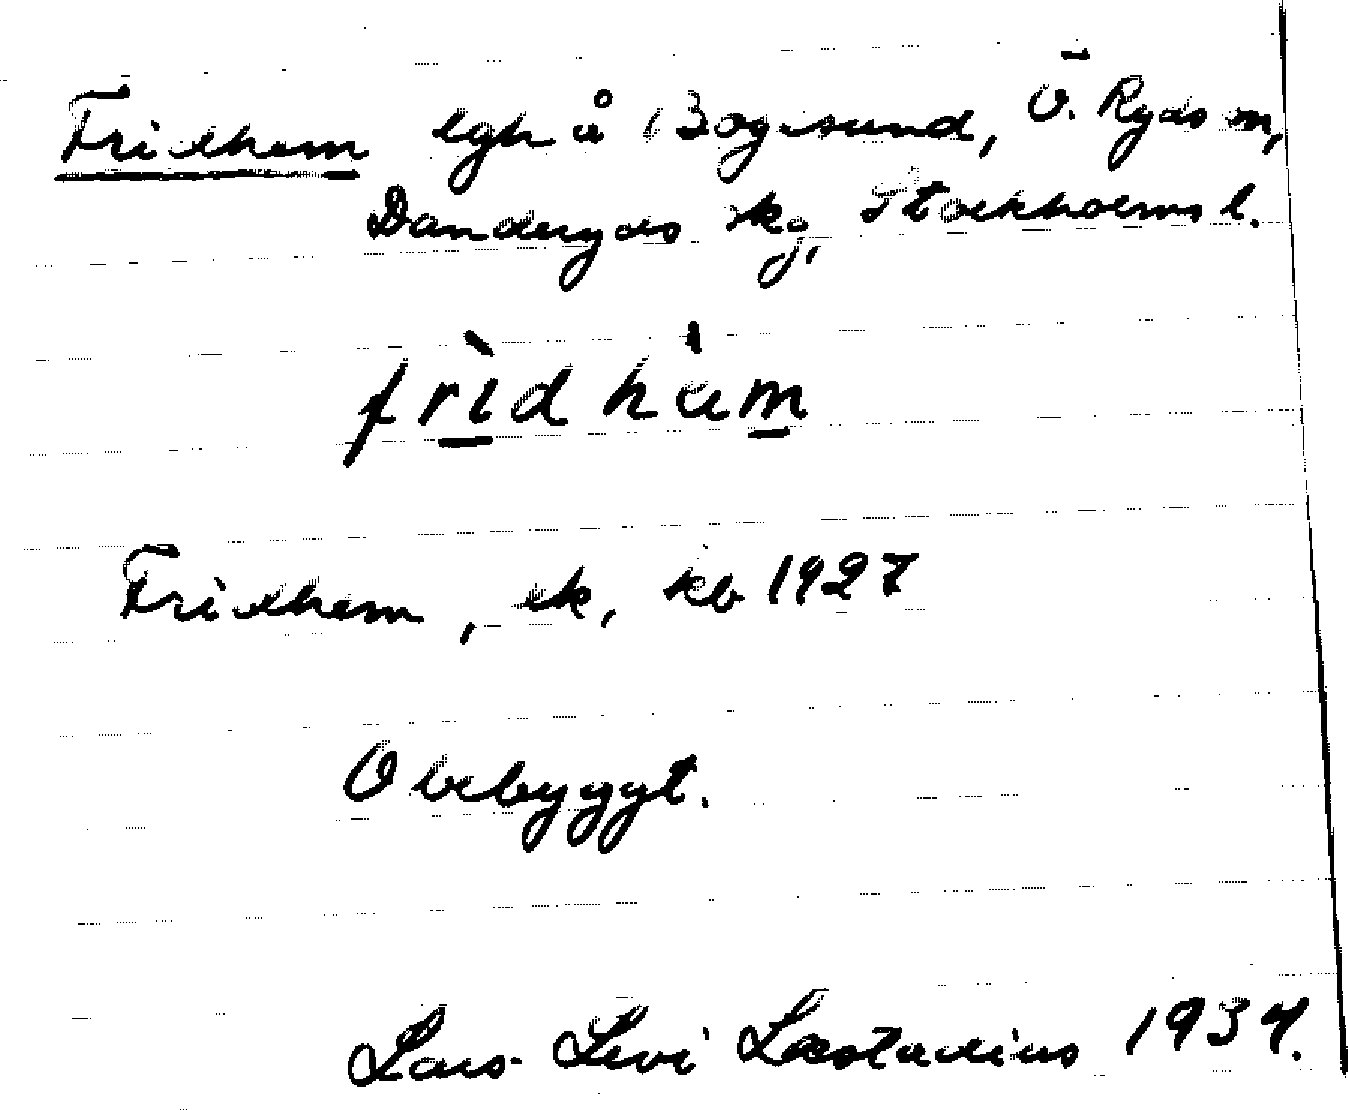 Fridhem lgh å Bogesund, Ö. Ryds sn,
Danderyds skg, Stockholms l.
frìdhàm
Fridhem, ek, kb 1927
Obebyggt.
Lars-Levi Læstadius 1934.